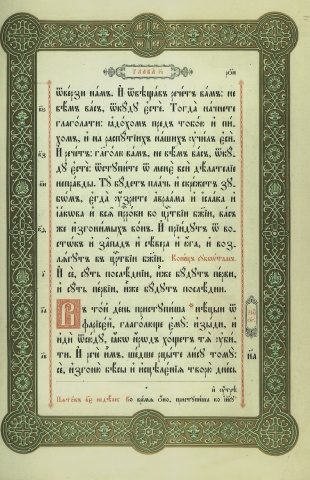 ГЛАВА ГІ. рои
ѿверзи намъ. И ѿвѣщавъ речетъ вамъ: не
вѣмъ васъ, ѿкуду есте. Тогда начнете
глаголати: ꙗдохомъ предъ тобою и пи-
хомъ, и на распутіихъ нашихъ училъ еси.
И речетъ: глаголю вамъ, не вѣмъ васъ, ѿку-
ду есте: ѿступите ѿ мене вси дѣлателіе
неправды. Ту будетъ плачь и скрежетъ зу-
бомъ, егда узрите авраама и ісаака и
іакова и вся пророки во царствіи божіи, васъ
же изгонимыхъ вонъ. И пріидутъ ѿ во-
стокъ и западъ и сѣвера и юга, и воз-
лягутъ въ царствіи божіи. Конецъ
И се, суть послѣдніи, иже будутъ перви,
и суть первіи, иже будутъ послѣдни.
Въ той день приступиша нѣцыи ѿ
фарісей, глаголюще ему: изыди, и
иди ѿсюду, яко иродъ хощетъ тя уби-
ти. И рече имъ: шедше рцыте лису тому:
се, изгоню бѣсы и исцѣленія творю днесь
и утрѣ
во время оно, приступиша ко іисусу